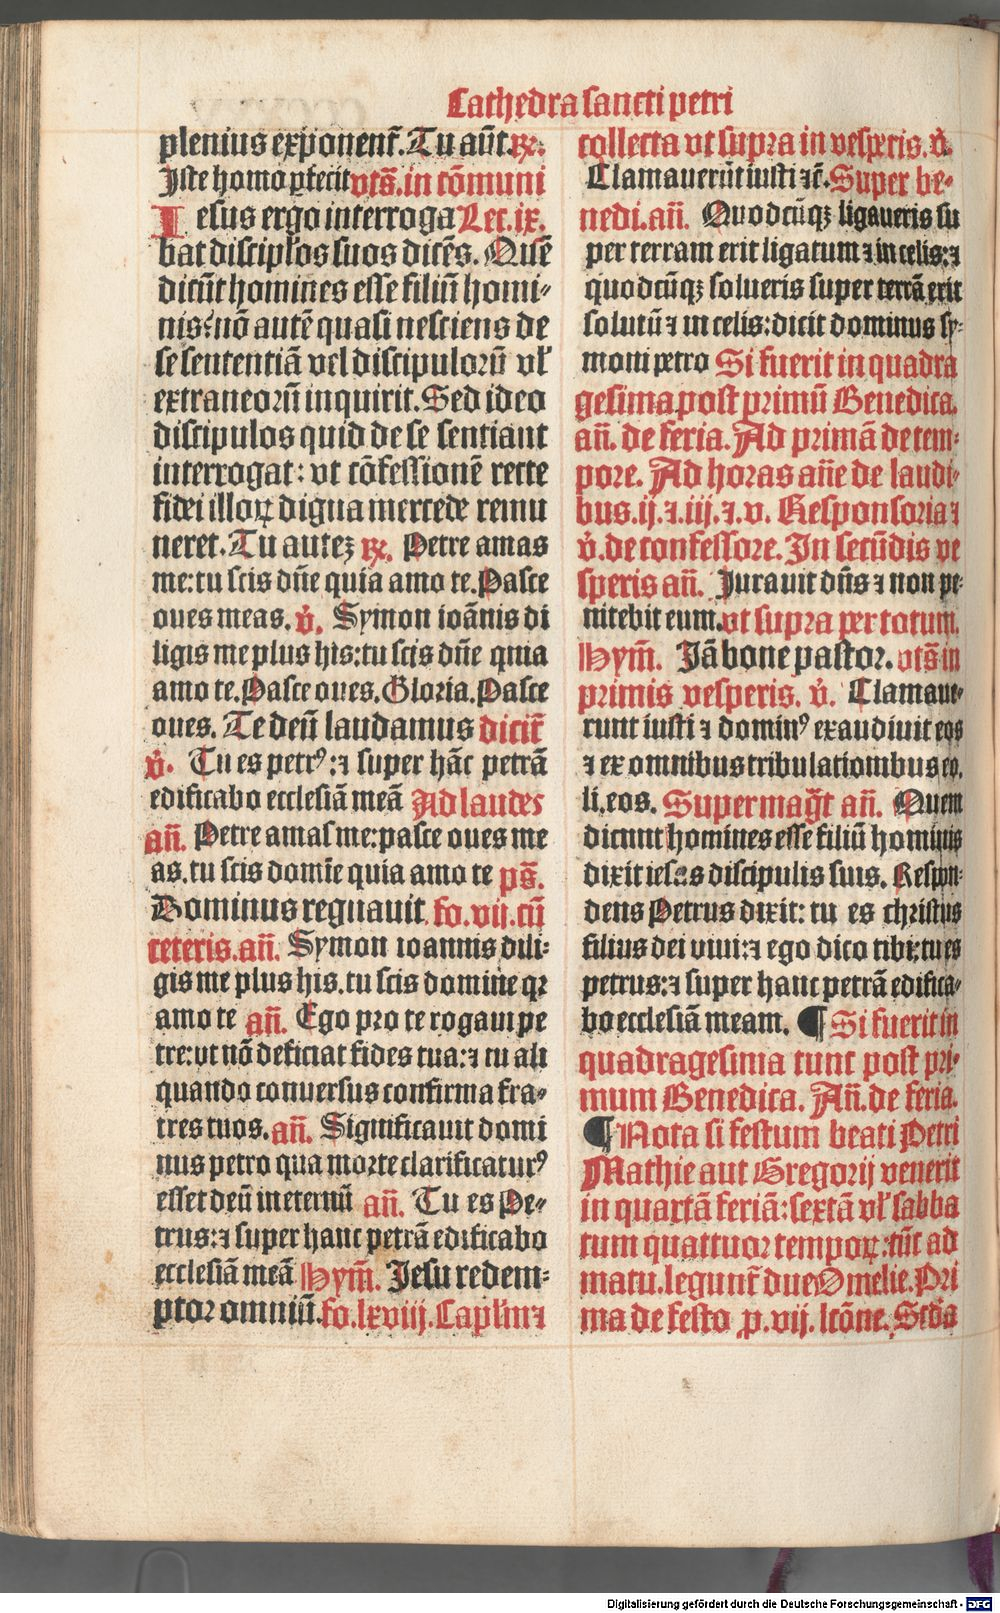 Cathedra sancti petri
plenius exponent̃. Tu aũt. ℞.
Iste homo ꝑfecit vts̃. in cõmuni
Iesus ergo interroga Lec. ix.
bat discipl̃os suos dicẽs. Quẽ
dicũt homines esse filiũ homi⸗
nis? nõ autẽ quasi nesciens de
se sententiã vel discipulorũ vl̃
extraneorũ inquirit. Sed ideo
discipulos quid de se sentiant
interrogat: vt cõfessionẽ recte
fidei illoꝝ digna mercede remu
neret. Tu autez ℞. Petre amas
me: tu scis dñe quia amo te. Pasce
oues meas. v̾. Symon ioãnis di
ligis me plus his: tu scis dñe quia
amo te. Pasce oues. Gloria. Pasce
oues. Te deũ laudamus dicit̃
v̾. Tu es petrꝰ: ⁊ super hãc petrã
edificabo ecclesiã meã Ad laudes
añ. Petre amas me: pasce oues me
as. tu scis domĩe quia amo te ps̃.
Dominus regnauit. fo. vij. cũ
ceteris. añ. Symon ioannis dili⸗
gis me plus his. tu scis domine qꝛ
amo te añ. Ego pro te rogaui pe
tre: vt nõ deficiat fides tua: ⁊ tu ali
quando conuersus confirma fra⸗
tres tuos. añ. Significauit domi
nus petro qua morte clarificaturꝰ
esset deũ in eternũ añ. Tu es Pe⸗
trus: ⁊ super hanc petrã edificabo
ecclesiã meã Hym̃. Jesu redem⸗
ptor omniũ. fo. lxviij. Capl̃m ⁊
collecta vt supra in vesperis. v̾.
Clamauerũt iusti ⁊c̃. Super be⸗
nedi. añ. Quodcũqꝫ ligaueris su
per terram erit ligatum ⁊ in celis: ⁊
quodcũqꝫ solueris super terrã erit
solutũ ⁊ in celis: dicit dominus sy⸗
moni petro Si fuerit in quadra
gesima post primũ Benedica.
añ. de feria. Ad primã de tem⸗
pore. Ad horas añe de laudi⸗
bus. ij. ⁊. iij. ⁊. v. Responsoria ⁊
v̾. de confessore. In secũdis ve
speris añ. Jurauit dñs ⁊ non pe⸗
nitebit eum. vt supra per totum.
Hym̃. Jã bone pastor. vts̃ in
primis vesperis. v̾. Clamaue⸗
runt iusti ⁊ dominꝰ exaudiuit eos
⁊ ex omnibus tribulationibus eo.
li. eos. Super mag̃t añ. Quem
dicunt homines esse filiũ hominis
dixit iesus discipulis suis. Respon⸗
dens Petrus dixit: tu es christus
filius dei viui: ⁊ ego dico tibi: tu es
petrus: ⁊ super hanc petrã edifica⸗
bo ecclesiã meam. ¶ Si fuerit in
quadragesima tunc post pri⸗
mum Benedica. Añ. de feria.
¶ Nota si festum beati Petri
Mathie aut Gregorij venerit
in quartã feriã: sextã vl̃ sabba
tum quattuor tempoꝝ: tũc ad
matu. legunt̃ due Omelie. Pri
ma de festo ꝓ. vij. lcõne. Scd̃a
Digitalisierung gefördert durch die Deutsche Forschungsgemeinschaft - DFG